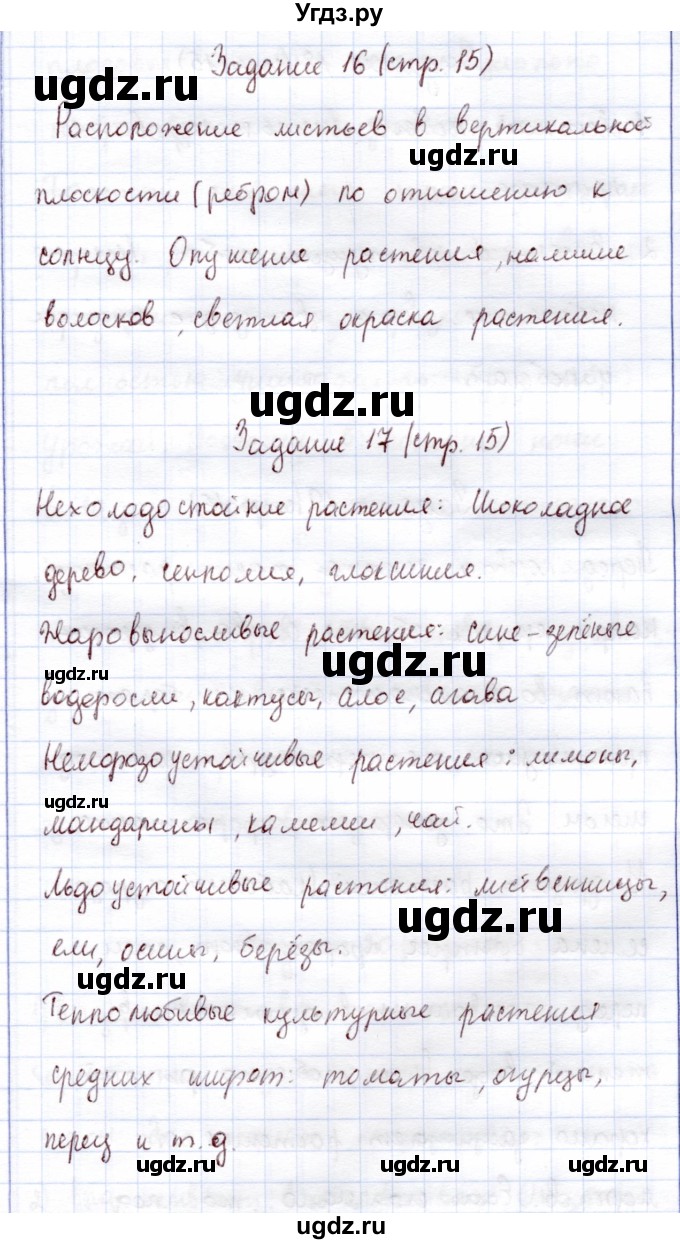 Угдз.ру
Задание 16 (стр. 15)
ugdz.ru
Расположение листьев в вертикальной
ugdz.ru
плоскости (ребром) по отношению к
солнцу. Опушение растения, наличие
волосков, светлая окраска растения.
ugdz.ru
Задание 17 (стр. 15)
Нехолодостойкие растения: Шоколадное
дерево, сенполия, глоксиния.
Жаровыносливые растения: сине-зелёные
ugdz.ru
ugdz.ru
водоросли, кактусы, алое, агава
Неморозоустойчивые растения: лимоны,
ugdz.ru
мандарины, камелии, чай.
Льдоустойчивые растения: лиственницы,
ugdz.ru
ели, осины, берёзы.
ugdz.ru
Теплолюбивые культурные растения
средних широт: томаты, огурцы,
перец и т.д.
ugdz.ru
ugdz.ru
ugdz.ru